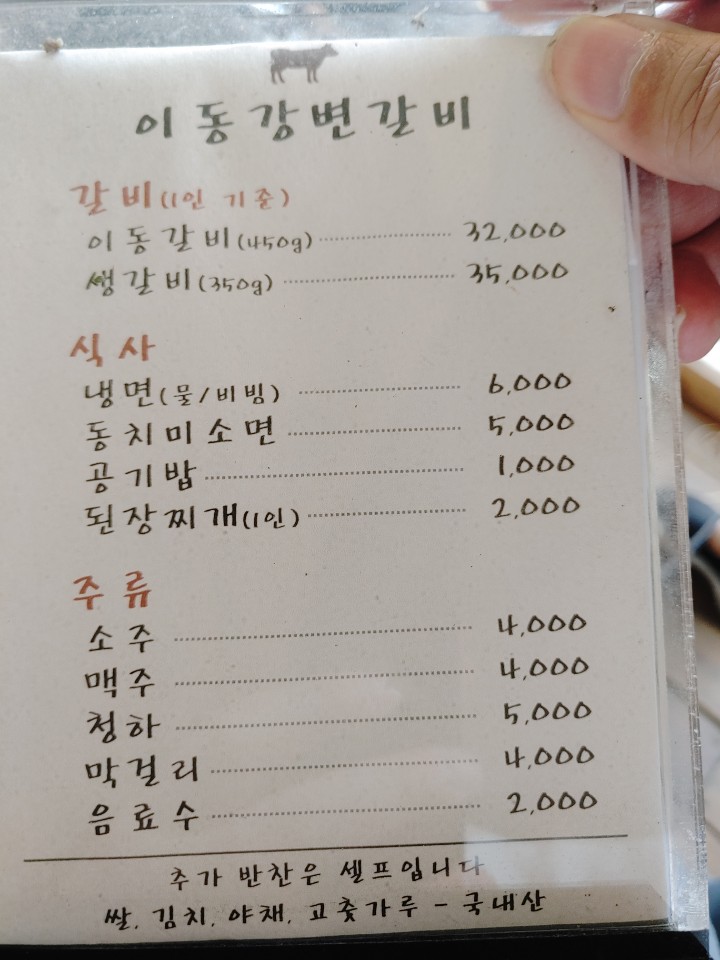 이동강변갈비
갈비(1인 기준)
이동갈비(450g) 32,000
쌩갈비(350g) 35,000
식사
냉면(물/비빔) 6,000
동치미소면 5,000
공기밥 1,000
된장찌개(1인) 2,000
주류
소주 4,000
맥주 4,000
청하 5,000
막걸리 4,000
음료수 2,000
추가 반찬은 셀프입니다
쌀, 김치, 야채, 고춧가루 - 국내산